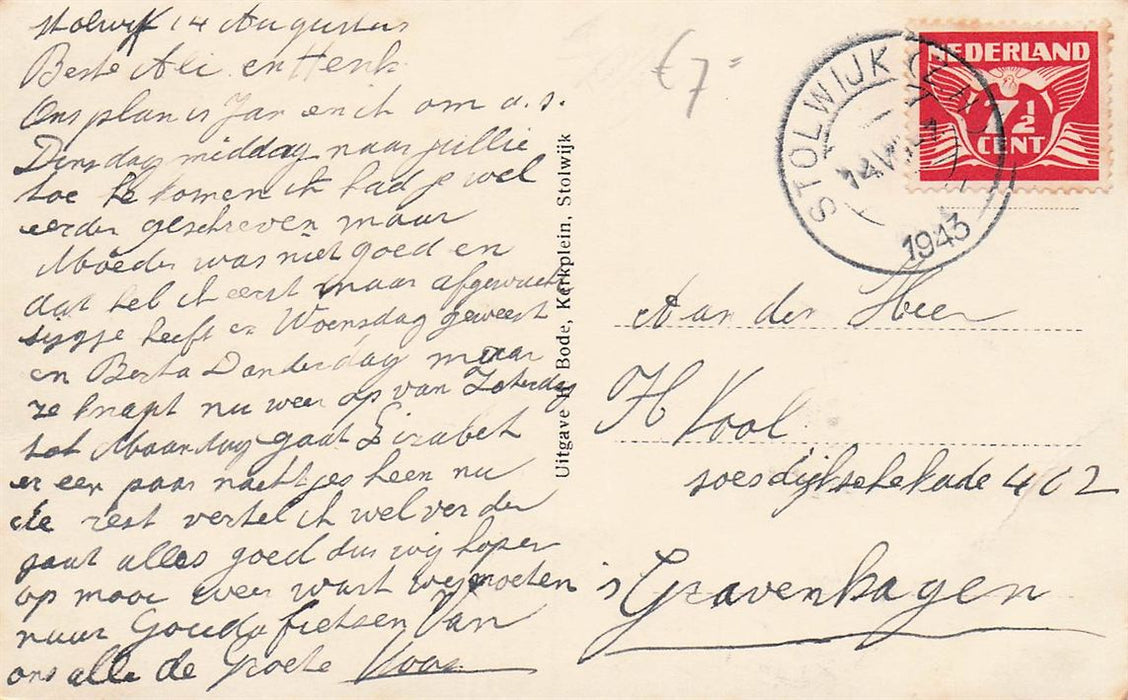 Stolwijk 14 Augustus
Beste Ali en Henk
Ons plan is Jan en ik om a.s.
Dinsdag middag naar jullie
toe te komen ik had je wel
eerder geschreven maar
Moeder was niet goed en
dat heb ik eerst maar afgewacht
heeft er Woensdag geweest
en Berta Donderdag maar
ze knapt nu weer op van Zaterdag
tot Maandag gaat Lizabet
er een paar nachtjes heen nu
de rest vertel ik wel verder
gaat alles goed dus wij hopen
op mooi weer want wij moeten
naar Gouda fietsen Van
ons alle de Groete Koos
Uitgave H. Bode, Kerkplein, Stolwijk
€ 7=
STOLWIJK (Z.H.)
14 VIII
1943
NEDERLAND
7½
CENT
Aan den Heer
H Kool
soesdijksekade 402
's Gravenhagen